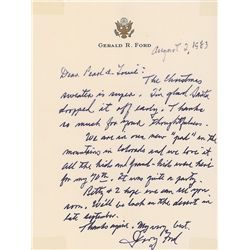 GERALD R. FORD
August 2, 1983
Dear Pearl & Louie:
The Christmas
sweater is super. I'm glad Santa
dropped it off early. Thanks
so much for your thoughtfulness.
We are in our new "pad" in the
mountains in Colorado and we love it
all the kids and grand-kids were here for
my 70th. It was quite a party.
Betty & I hope we can see you
soon. We'll be back in the desert in
late September.
Thanks again. My very best.
Jerry Ford